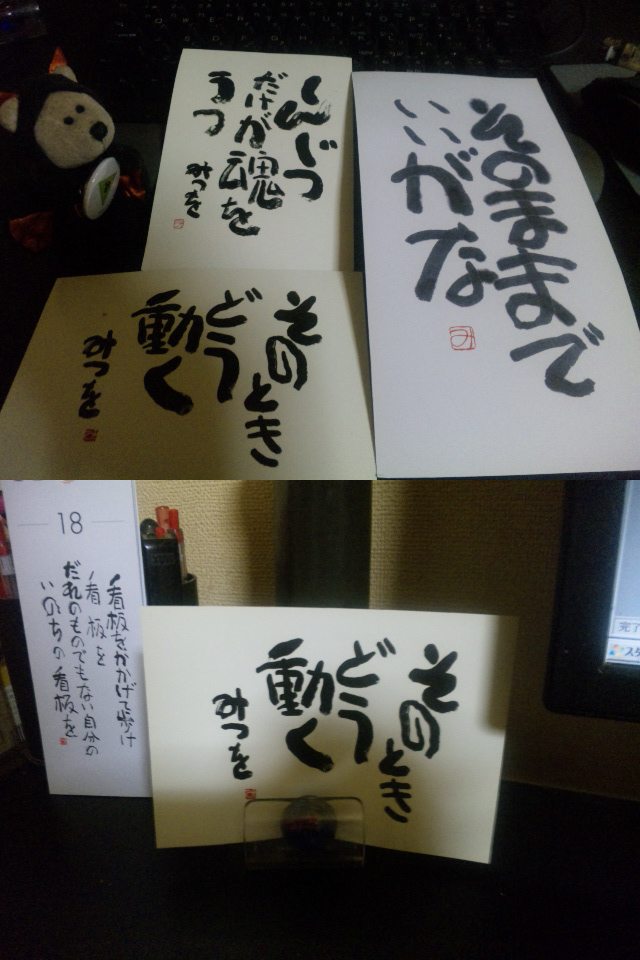 しんじつ
だけが魂を
うつ
みつを
そのままで
いいがな
み
そのとき
どう
動く
みつを
18
看板をかかげて歩け
看板を
だれのものでもない自分の
いのちの看板を
そのとき
どう
動く
みつを
完了
スタ